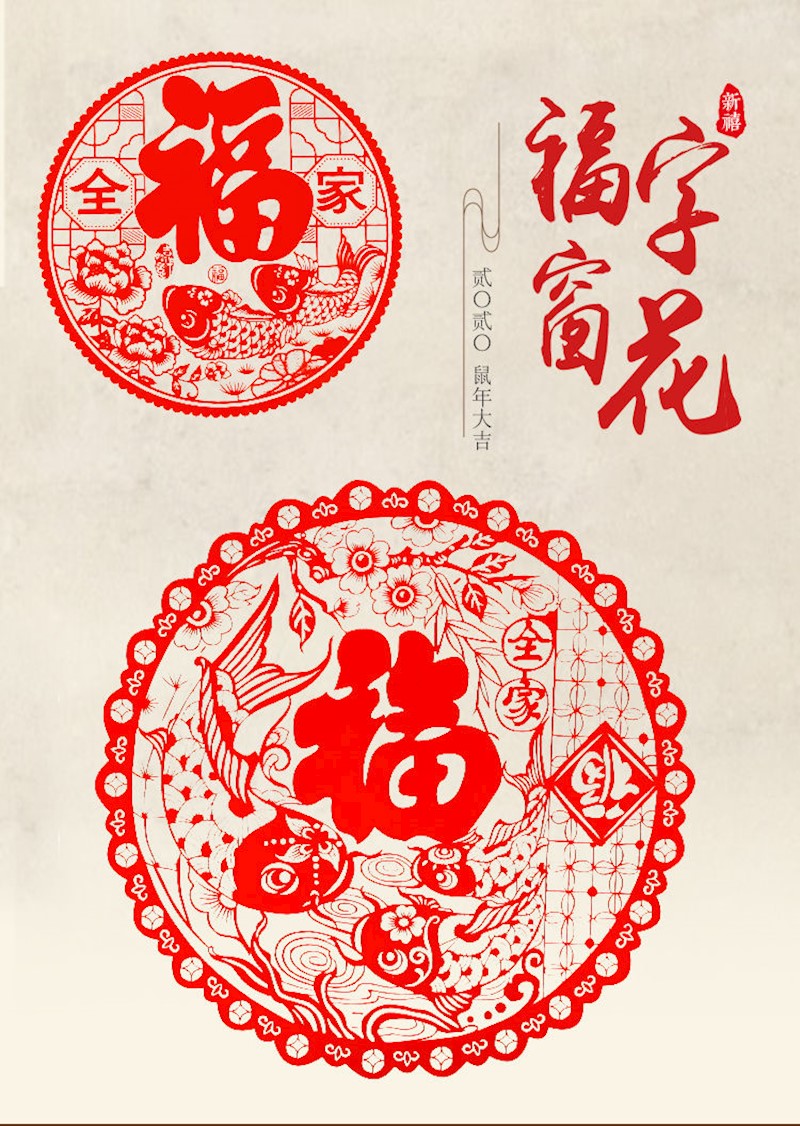 全福家
福
新禧
福字窗花
贰〇贰〇 鼠年大吉
全家
福
福